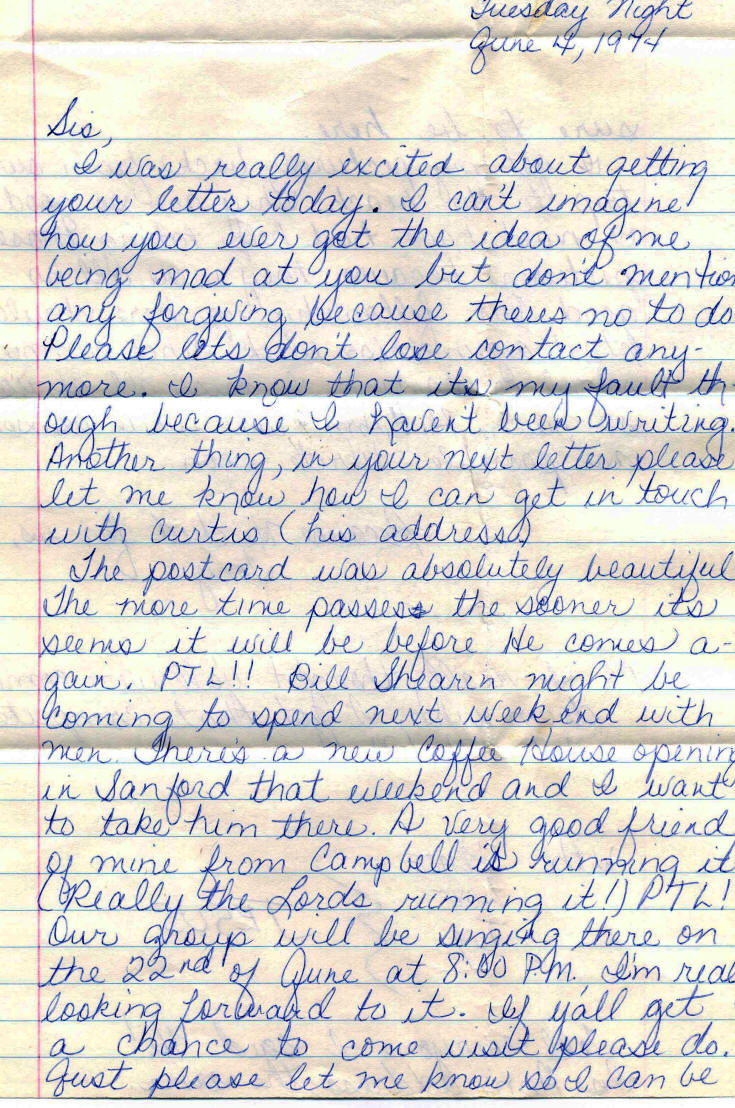 Tuesday Night
June 4, 1974
Sis,
I was really excited about getting
your letter today. I can't imagine
how you ever got the idea of me
being mad at you but don't mention
any forgiving because theres no to do
Please lets don't lose contact any-
more. I know that its my fault th-
ough because I haven't been writing.
Another thing, in your next letter please
let me know how I can get in touch
with Curtis (his address)
The postcard was absolutely beautiful
The more time passes the sooner its
seems it will be before He comes a-
gain. PTL!! Bill Shearin might be
coming to spend next weekend with
men. There's a new Coffee House opening
in Sanford that weekend and I want
to take him there. A very good friend
of mine from Campbell is running it
(Really the Lords running it!) PTL!
Our group will be singing there on
the 22nd of June at 8:00 P.M. I'm real
looking forward to it. If y'all get
a chance to come visit please do.
Just please let me know so I can be